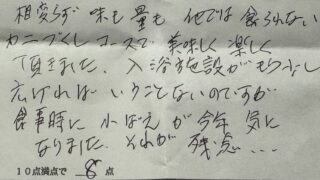 相変らず 味も量も 他では食られない
カニづくしコースで 美味しく 楽しく
頂きました、入浴施設がもう少し
広ければ いうことないのですが
食事時に 小ばえが 今年 気に
なりました。それが 残念...
10点満点で 8 点